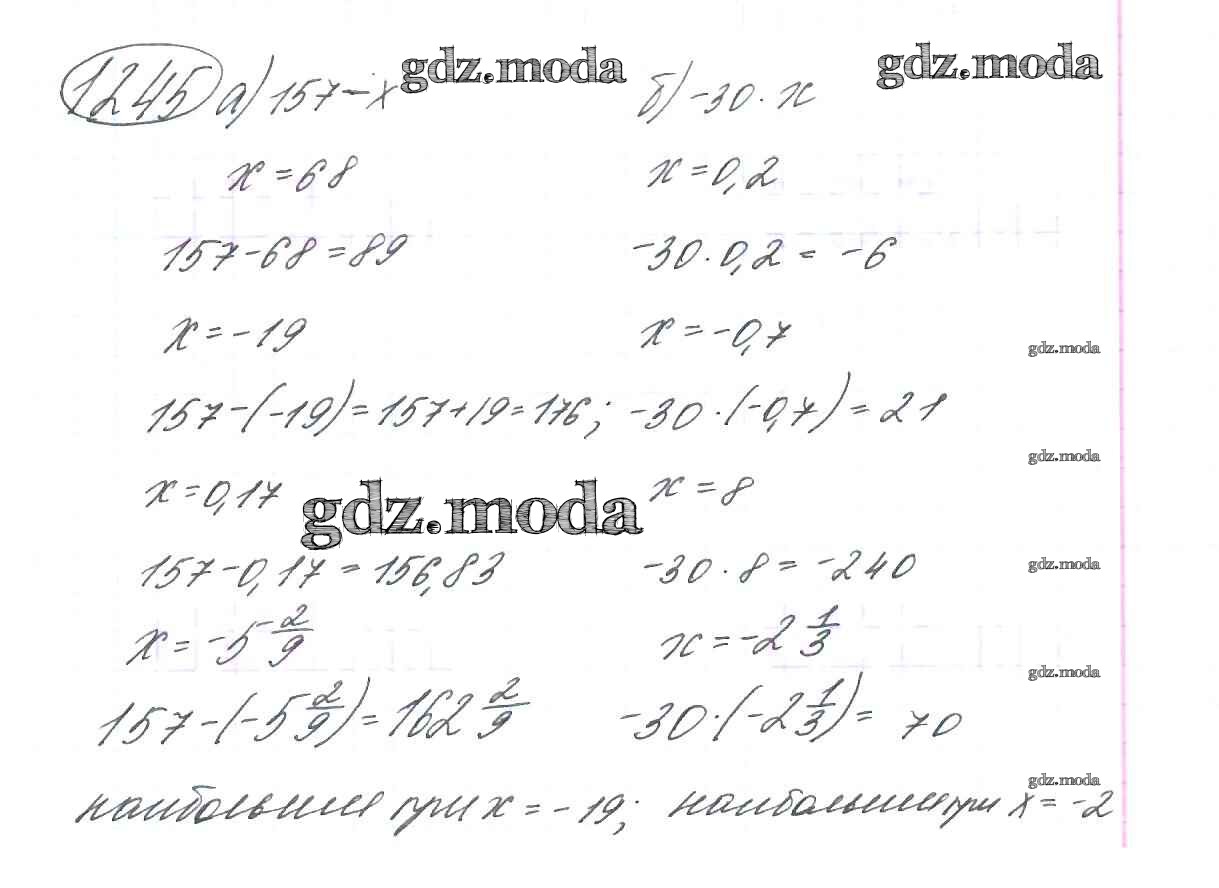 1245 а) 157-x gdz.moda б) -30·x gdz.moda
x=68 x=0,2
157-68=89 -30·0,2= -6
x=-19 x=-0,7
gdz.moda
157-(-19)=157+19=176; -30·(-0,7)=21
gdz.moda
x=0,17 gdz.moda x=8
157-0,17=156,83 -30·8=-240
gdz.moda
x=-5 2/9 x=-2 1/3
gdz.moda
157-(-5 2/9)=162 2/9 -30·(-2 1/3)= 70
gdz.moda
наибольшим при x=-19; наибольшим при x=-2